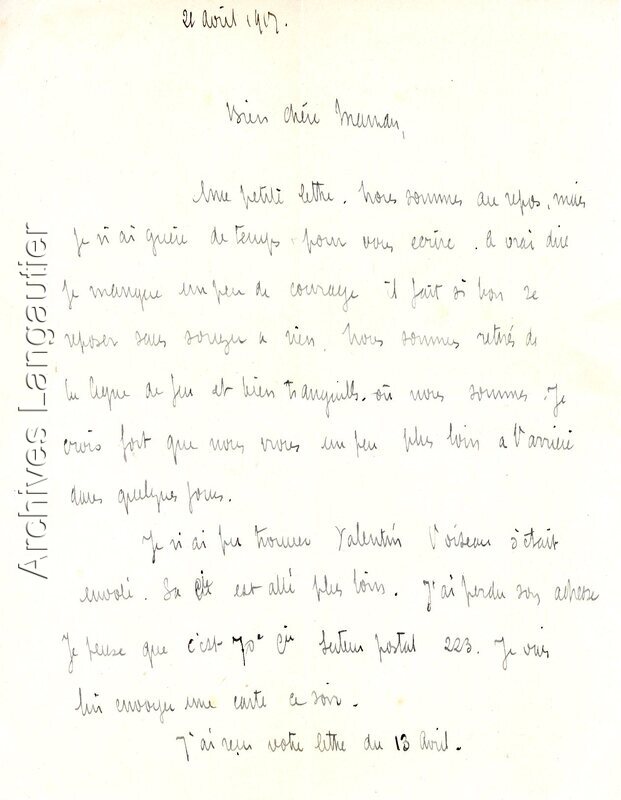 21 avril 1917.
Bien chère Maman,
Une petite lettre. Nous sommes au repos, mais
je n'ai guère de temps pour vous écrire. A vrai dire
je manque un peu de courage il fait si bon se
reposer sans songer a rien. Nous sommes retirés de
la ligne de feu et bien tranquills. où nous sommes Je
crois fort que nous irons un peu plus loin a l'arrière
dans quelques jours.
Je n'ai pu trouver Valentin l'oiseau s'était
envolé. Sa Cie est allé plus loin. J'ai perdu son adresse
Je pense que c'est 70e Cie Secteur postal 223. Je vais
lui envoyer une carte ce soir.
J'ai reçu votre lettre du 13 Avril.
Archives Langautier